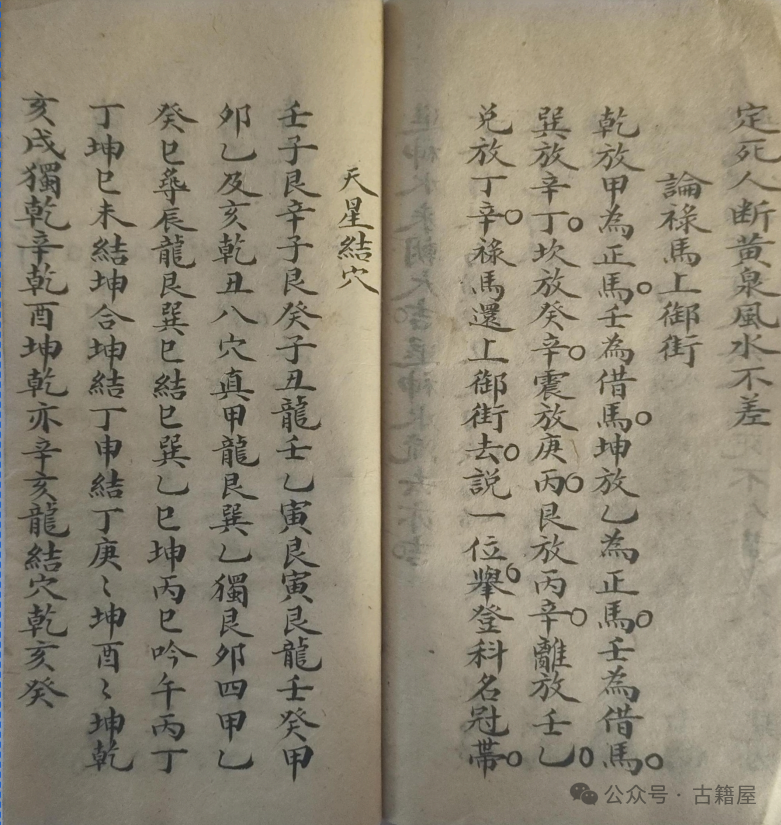 定死人断黃泉風水不差
論祿馬上御街
乾放甲為正馬○壬為借馬○坤放乙為正馬○壬為借馬○
巽放辛丁○坎放癸辛○震放庚丙○艮放丙辛○離放壬乙○
兌放丁辛○祿馬還上御街去○説一位舉○登科名冠帶○
天星結穴
壬子艮辛子艮癸子丑龍壬乙寅艮寅艮龍壬癸甲
卯乙及亥乾丑八穴真甲龍艮巽乙獨艮卯四甲乙
癸巳尋辰龍艮巽巳結巳巽乙巳坤丙巳吟午丙丁
丁坤巳未結坤合坤結丁申結丁庚〻坤酉〻坤乾
亥戌獨乾辛乾酉坤乾亦辛亥龍結穴乾亥癸
公众号·古籍屋